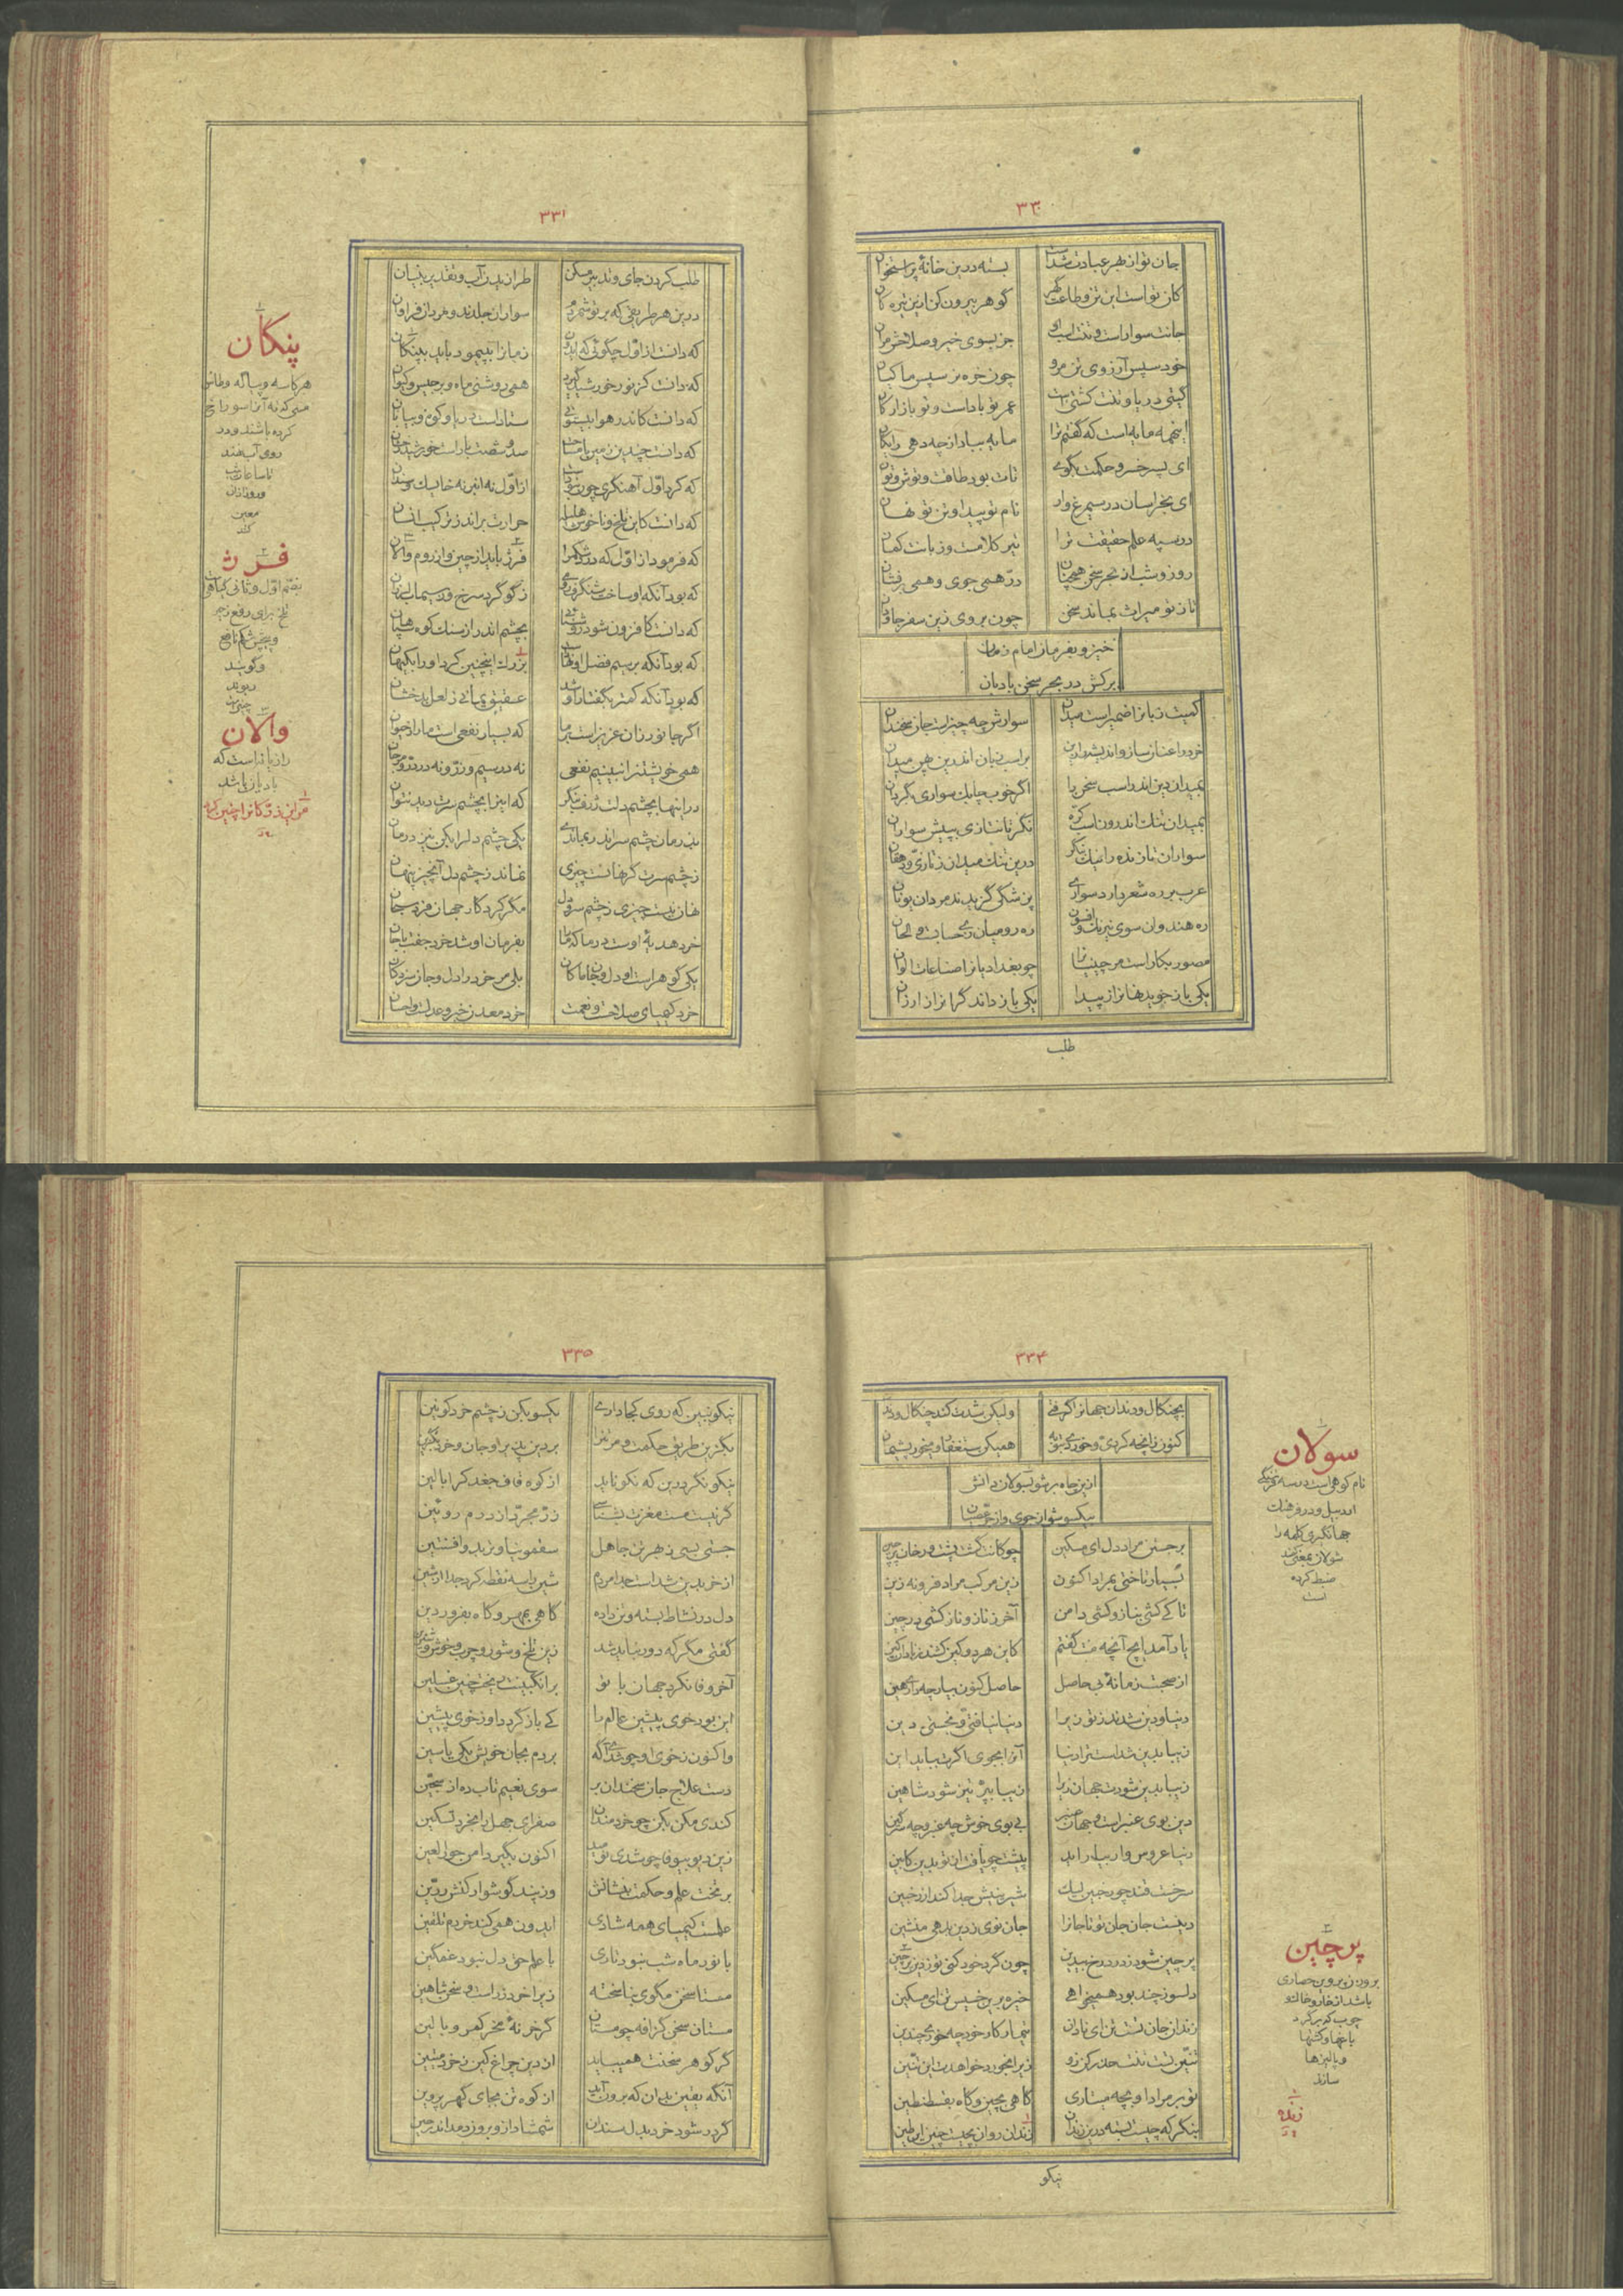 ۳۳۰
جان تو از بهر عبادت شدست بسته درین خانهٔ پر استخوان
کان تو است این تن و طاعت گهر گوهر بیرون کن ازین تیره کان
جانت سوار است و تنت اسب او جز بسوی خیر و صلاحش مران
خود سپس آرزوی تن مرو چون خره نر سپس ماکیان
گیتی دریا و تنت کشتی است عمر تو باد است و تو بازارگان
اینهمه مایه است که گفتم ترا مایه بباد از چه دهی رایگان
ای پسر خسرو حکمت بگوی تات بود طاقت و توش و توان
ای بخراسان در سیمرغ وار نام تو پیدا و تن تو نهان
در سپه علم حقیقت ترا تیر کلامست و زبانت کمان
روز و شب از بحر سخن همچنان درّ همی جوی و همی برفشان
تا ز تو میراث بماند سخن چون بروی زین سفر جاودان
خیز و بفرمان امام زمان
برکش در بحر سخن بادبان
کمیت زبانرا ضمیر است میدان سوارش چه چیز است جان سخندان
خرد را عنان ساز و اندیشه را زین بر اسب زبان اندرین پهن میدان
بمیدان دین اندر اسب سخن را اگر خوب چابک سواری بگردان
بمیدان تنگ اندرون اسب کرّه نگر تا نتازی بپیش سواران
سواران تازنده را نیک بنگر درین تنگ میدان ز تازی و دهقان
عرب بر ره شعر دارد سواری پزشکی گزیدند مردان یونان
ره هندوان سوی نیرنگ و افسون ره رومیان زی حسابست و الحان
مصور بکار است مر چینیان را چو بغدادیانرا صناعات الوان
یکی باز جوید نهانرا ز پیدا یکی باز داند گرانرا ز ارزان
طلب
۳۳۱
طلب کردن جای و تدبیر مسکن طرازیدن آب و تقدیر بنیان
درین هر طریقی که بر تو شمردم سواران جلدند و مردان فراوان
که دانست از اول چگوئی که ایدون زمانرا بپیمود باید بپنگان
که دانست کز نور خورشید گیرد همی روشنی ماه و برجیس و کیوان
که دانست کاندر هوا بیستونی ستادست دریا و کوه و بیابان
که دانست چندین زمین را مساحت صد و شصت بار است خورشید چندان
که کرد اول آهنگری چون نبودست از اول نه انبر نه خایسک و سندان
که دانست کاین تلخ و ناخوش هلیله حرارت براند ز ترکیب انسان
که فرمود از اول که درد شکم را فرژ باید از چین و از روم والان
که بود آنکه او ساخت شنگرف رومی ز گوگرد سرخ و ز سیماب لرزان
که دانست کافزون شود روشنائی بچشم اندر از سنگ کوه سپاهان
که بود آنکه بر سیم فضل او نهادست بزر که اینچنین کرد او را بگیهان
که بود آنکه کمتر بگفتار او شد عقیق یمانی ز لعل بدخشان
اگر جانور زان عزیز است بر ما که بسیار نفعی است ما را ز حیوان
همی خویشتن را نبینیم نفعی نه در سیم و زر و نه در درّ و مرجان
در اینها بچشم دلت ژرف بنگر که اینرا بچشم سرت دید نتوان
بدرمان چشم سر اندر بماندی یکی چشم دلرا بکن نیز درمان
ز چشم سرت گر نهانست چیزی نماند ز چشم دل آنچیز پنهان
نهان نیست چیزی ز چشم سر و دل مگر کردگار جهان فرد سبحان
خرد هدیهٔ اوست در ما که ما را بفرمان او شد خرد جفت با جان
یکی گوهر است او دل و جان ما کان بلی مر خرد را دل و جان سزد کان
خرد کیمیای صلاحست و نعمت خرد معدن خیر و عدلست و احسان
پنکان
هر کاسه و پیاله و طاس
مسی که ته آنرا سوراخ
کرده باشند و در
روی آب نهند
تا ساعات شب
و روز از آن
معین
کنند
فرژ
بضم اول و ثانی گیاهی
تلخ برای رفع زحیر
و پیچش شکم نافع
و گویند
ریوند
چینی است
والان
رازیانه است که
بادیان باشد
۳۳۴
بچنگال و دندان جهانرا گرفتی ولیکن شدت کند چنگال و دندان
کنون زانچه کردی و خوردی بتوبه همی کن ستغفار و میخور پشیمان
ازین چاه بر شو بسولان دانش
بیکسو شو از جوی و از جر عصیان
بر جستن مراد دل ای مسکین چوگانت گشت پشت و رخان پرچین
بسیار تاختی بمراد اکنون زین مرکب مراد فرو نه زین
تا کی کشی بناز و کشی دامن آخر ز ناز و ناز کشی در چین
یاد آمد ایچ آنچه منت گفتم کاین هر دو کین کشند ز نادان کین
از صحبت زمانهٔ بی حاصل حاصل کنون بیار چه داری هین
دنیا و دین شدند ز تو زیرا دنیا نیافتی و نجستی دین
زیبا بدین شد است ترا دنیا آنرا بجوی اگرت بباید این
زیبا بدین شود جهان زیرا زیبا بپرّ تیز شود شاهین
دین بوی عنبر است و جهان عنبر بی بوی خوش چه عنبر و چه سرگین
دنیا عروس وار بیاراید پیشت چو یافت از تو بدین کابین
سرخست قند چون رخ چین لیک شیرینیش جدا کند از چین
دینست جان جان تو تا جانرا جان نوی ز دین ندهی منشین
پر چین شود ز درد رخ بیدین چون گرد خود کنی تو ز دین پرچین
دلسوز چند بود همی خواهی خیره برین خسیس تن ای مسکین
زندان جان تست تن ای نادان تیمار کار خود چه خوری چندین
تنّین تست تنت حذر کن زو زیرا بخورد خواهدت این تنّین
تو بر مراد او چه متازی گاهی بچین و گاه بقسطنطین
بنگر که چیست بسته درین زندان زندان روان بچیست چنین این طین
نیکو
سولان
نام کوهی است در سه فرسنگی
اردبیل و در فرهنگ
جهانگیری کلمه را
شولان بمعنی کمند
ضبط کرده
است
پرچین
بر وزن پروین حصاری
باشد از خار و خاشاک و
چوب که بر گرد
باغها و کشتها
و پالیزها
سازند
۳۳۵
نیکو ببین که روی کجا داری یکسو بکن ز چشم خرد کوبین
بگزین طریق حکمت و مر تنرا بر دین بدین بر او جان و خرد بگزین
نیکو نگردد این که نکو ناید از کوه قاف جغد کرا بالین
گر نیست مست مغزت بشناسی زر مجرد از درم روئین
جستی بسی ز بهر تن جاهل سقمونیا و تربد و افسنتین
از خر بدین شد است جدا مردم شین را سه نقطه کرد جدا از سین
دل در نشاط بسته و تن داده گاهی بمهر و گاه بفروردین
گفتی مگر که دور نباید شد زین تلخ و شور و چرب و خوش و شیرین
آخر وفا نکرد جهان با تو برانگبینت ریخت چنین غسلین
این بود خوی پیشین عالم را کی باز گردد او ز خوی پیشین
واکنون ز خوی او چو شدی آگه بر دم بجان خویش یکی یاسین
دست علاج جان سخندان بر سوی نعیم تاب ره از سجین
کندی مکن بکن چو خردمندان صفرای جهل را بخرد تسکین
زین دیو بیوفا چو شدی نومید اکنون بگیر دامن حور العین
بر تخت علم و حکمت بنشانش وز پند گوشوار کنش زرین
علمست کیمیای همه شادی ایدون همی کند خردم تلقین
با نور ماه شب نبود تاری با علم حق دل نبود غمگین
مستا سخن مگوی بنا سخته زیرا خرد زر است و سخن شاهین
مستان سخن گزافه چو مستان گر خر نهٔ مخر کمر و بالین
گر گوهر سخنت همیباید از دین چراغ کن ز خرد میتین
آنگه یقین بدان که برون آید از کوه تن بجای گهر پروین
گردد شود خرد بدل سندان شمشاد از او بروز دمد اندر چین